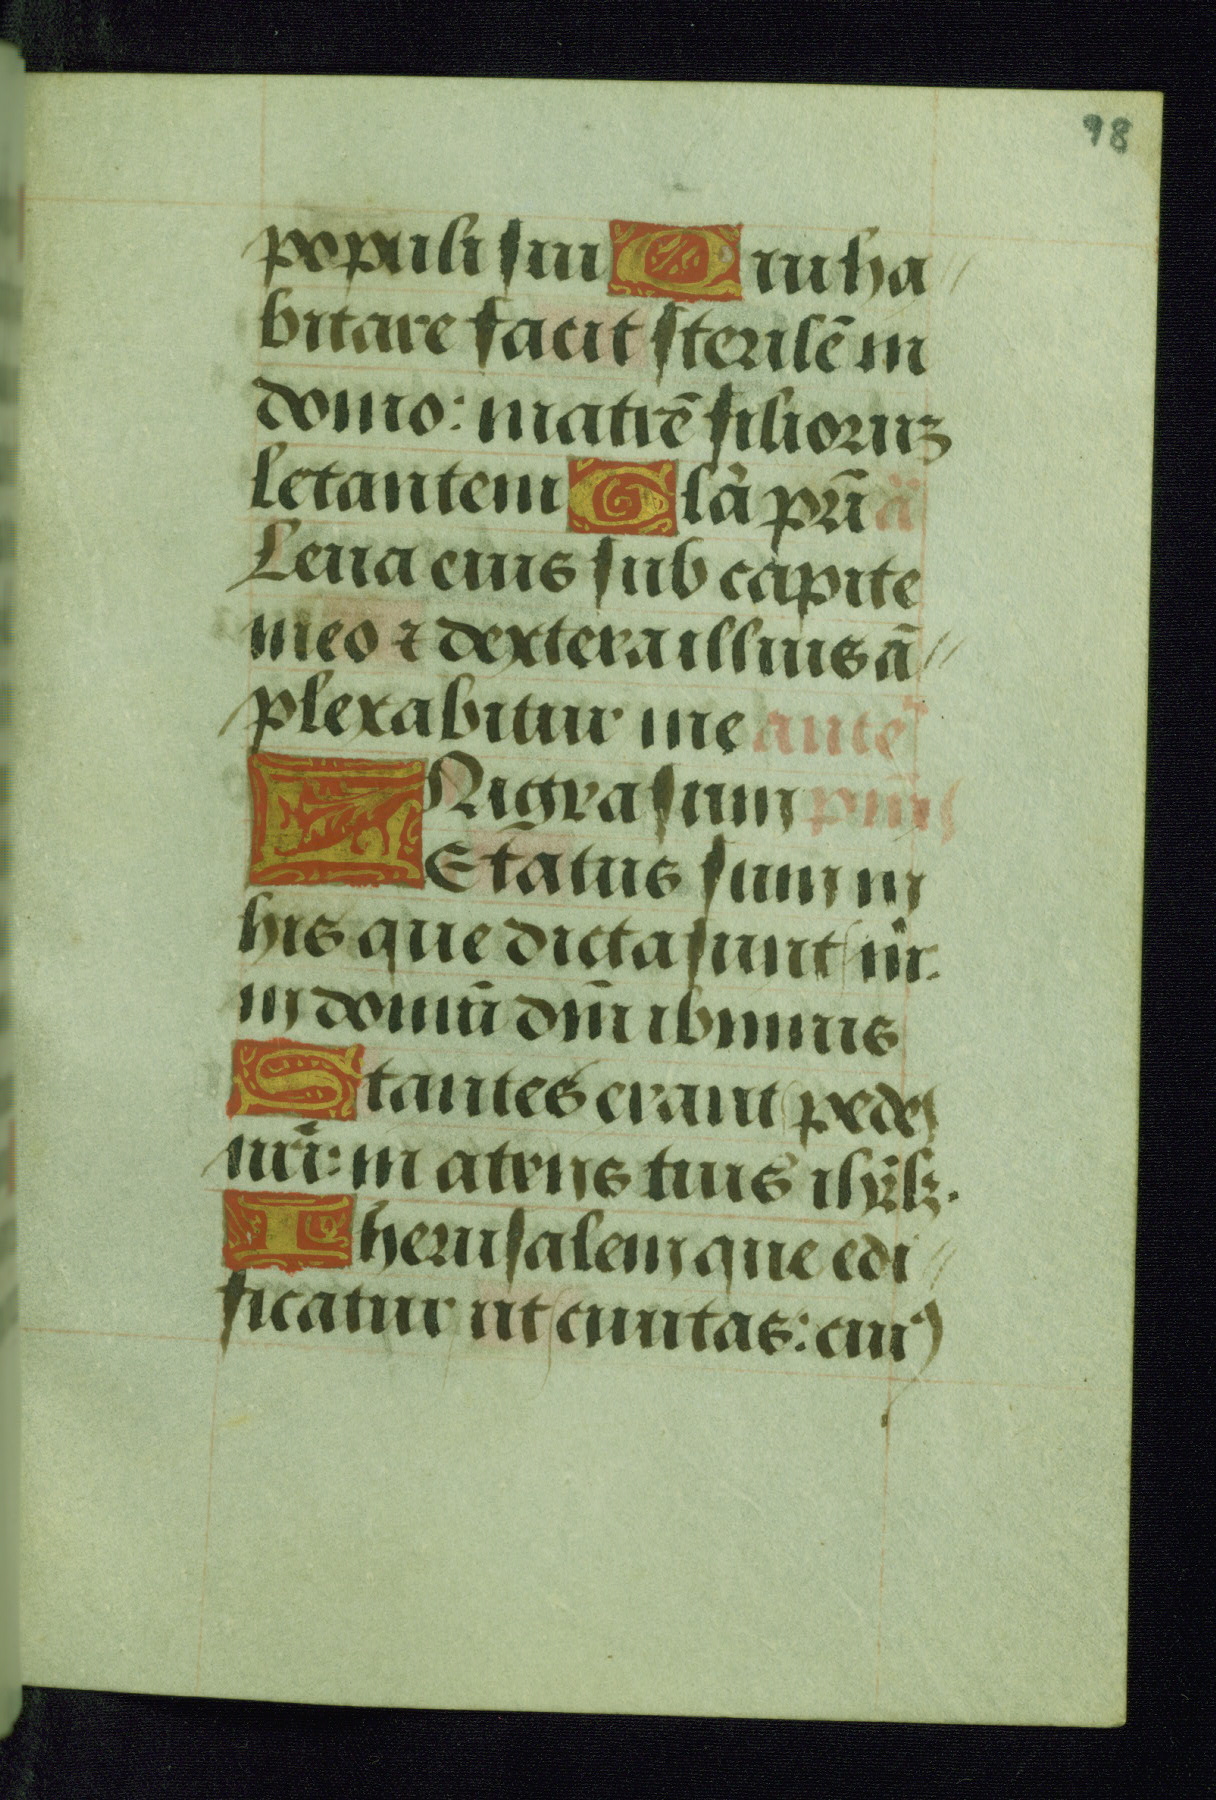 98
populi sui Qui ha
bitare facit sterilē in
domo: matrē filioruꝫ
letantem Glā pr̄i ā
Leua eius sub capite
meo ⁊ dextera illius ā
plexabitur me ante
Nigra sum pm̄s
LEtatus sum in
his que dicta sunt m̄.
in domū dn̄i ibimus
Stantes erant pedes
nr̄i: in atrijs tuis ihr̄lꝫ.
Iherusalem que edi
ficatur ut ciuitas: cui⁹